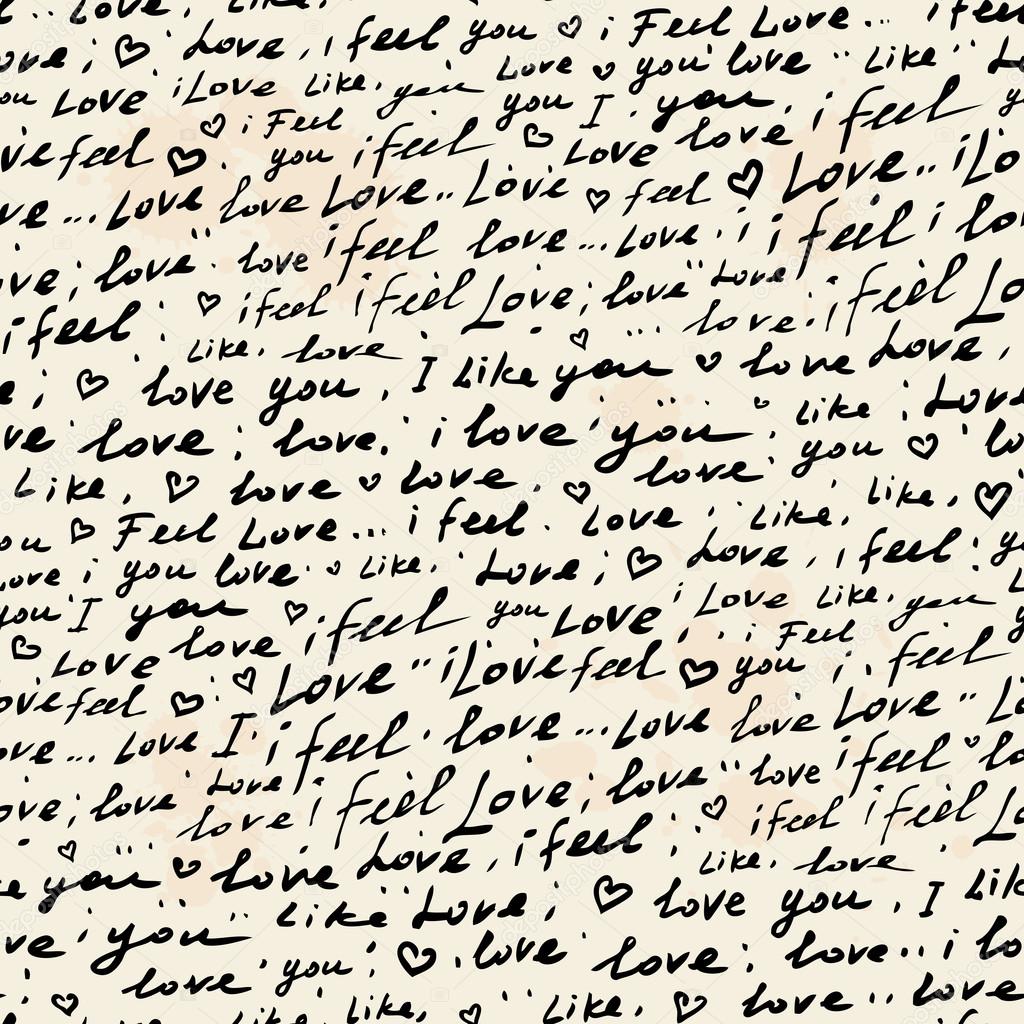 Love, Like,
ove; ♡ Love, i feel you ♡ i Feel Love... i feel
you Love iLove Like. you Love ♡ you love " Like "
♡ i Feel you I you, i feel
ve feel ♡. you i feel ♡ Love love
ve... Love love Love.. Love ♡ feel ♡ Love.. iLo
ve; love " love i feel love... Love i i feel i lo
i feel ♡ i feel i feel Love; love " Love i feel Lo
Like, love love.
e; ♡ love you, I Like you ♡ love Love,
ve love; love, i love you Like; Love
Like, ♡ love ♡ love, ♡ love you ♡ lo
ou ♡ Feel Love... i feel. Love Like, Like, ♡
ove i you love ♡ Like. Love; ♡ Love, i feel: yo
you I you ♡ i feel you Love, i Love Like. you
♡ Love love i Feel
ove feel ♡ ♡ Love " iLove feel ♡ you i. feel
ove... Love I i feel. love... Love love Love "
ove; love Love i feel Love; love " love i feel ♡ lo
love ♡ i feel i feel Lo
♡ Like. love
e you ♡ love Love, i feel
ve you Like Love; ♡ love you, I Lik
love you; ♡. love love; love.. i lo
♡ Like, Like, ♡ Like, ♡ love.. love